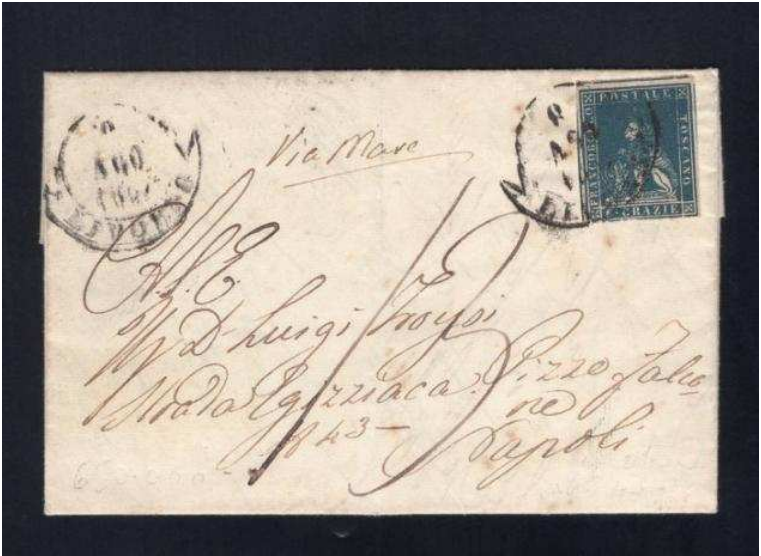 AGO
LIVORNO
Via Mare
AGO
LI
FRANCOBOLLO POSTALE TOSCANO
GRAZIE
A. S. E.
D. Luigi Troysi
Strada Egizziaca Pizzo Falco
ne
N 43
Napoli